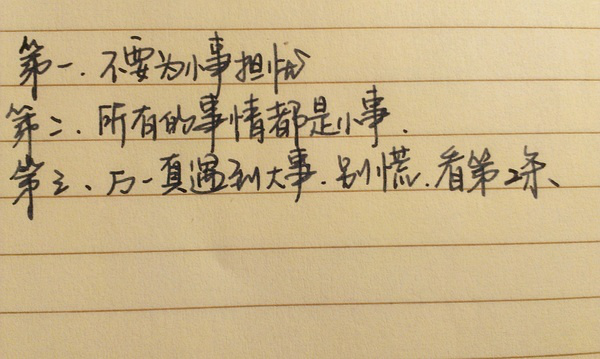 第一. 不要为小事担忧
第二. 所有的事情都是小事.
第三、万一真遇到大事. 别慌. 看第2条、